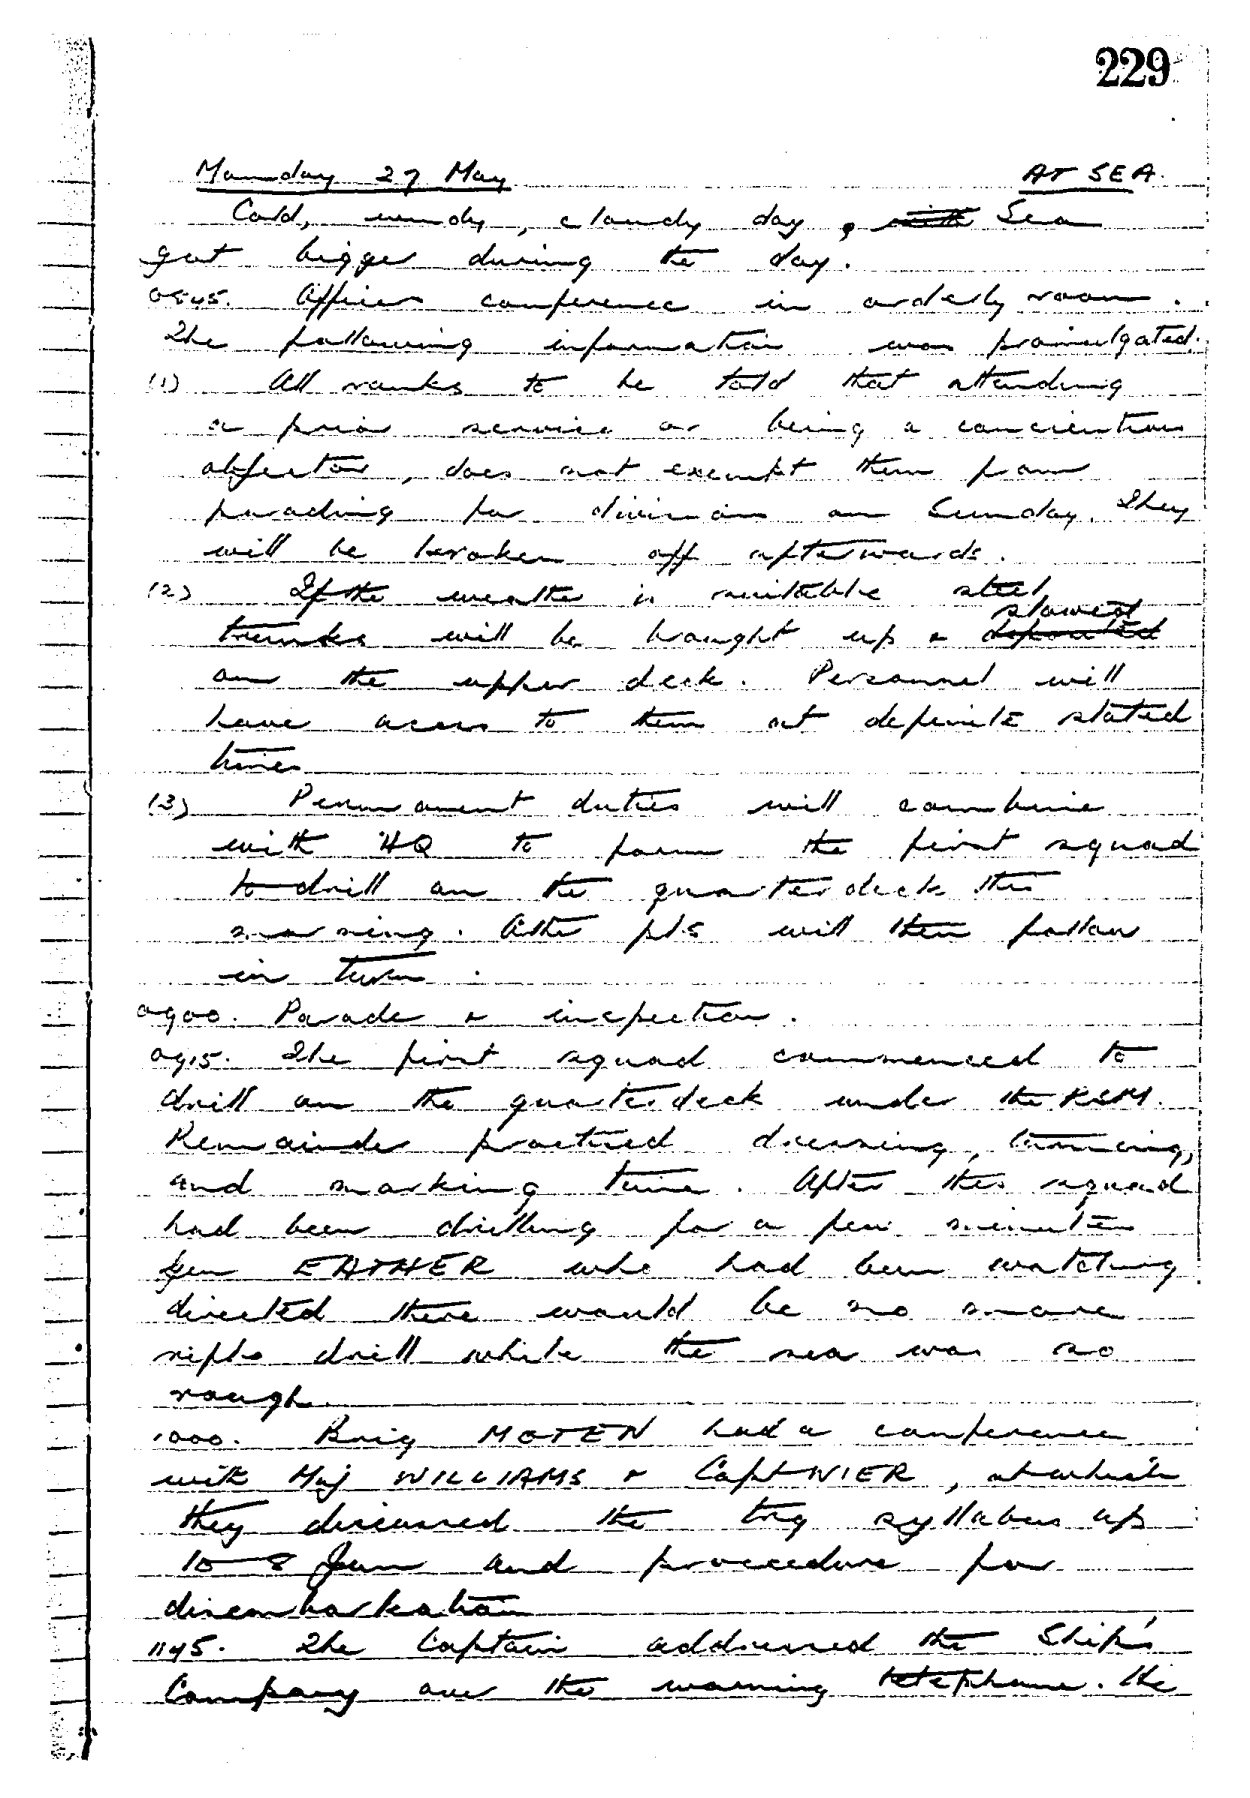 229
Monday 27 May AT SEA.
Cold, windy, cloudy day, with Sea
got bigger during the day.
0845. Officers conference in orderly room.
The following information was promulgated.
(1) All ranks to be told that attending
a prior service or being a conscientious
objector, does not exempt them from
parading for divisions on Sunday. They
will be broken off afterwards.
(2) If the weather is suitable steel
stowed
trunks will be brought up & deposited
on the upper deck. Personnel will
have access to them at definite stated
times
(3) Permanent duties will combine
with HQ to form the first squad
to drill on the quarterdeck this
morning. Other pls will then follow
in turn.
0900. Parade & inspection.
0915. The first squad commenced to
drill on the quarterdeck under the RSM.
Remainder practised dressing, turning,
and marking time. After this squad
had been drilling for a few minutes
Gen EATHER who had been watching
directed there would be no more
rifle drill while the sea was so
rough.
1000. Brig MOTEN had a conference
with Maj WILLIAMS & Capt NIER, at which
they discussed the trg syllabus up
to 8 Jun and procedure for
disembarkation
1145. The Captain addressed the Ship's
Company over the warning telephone. He